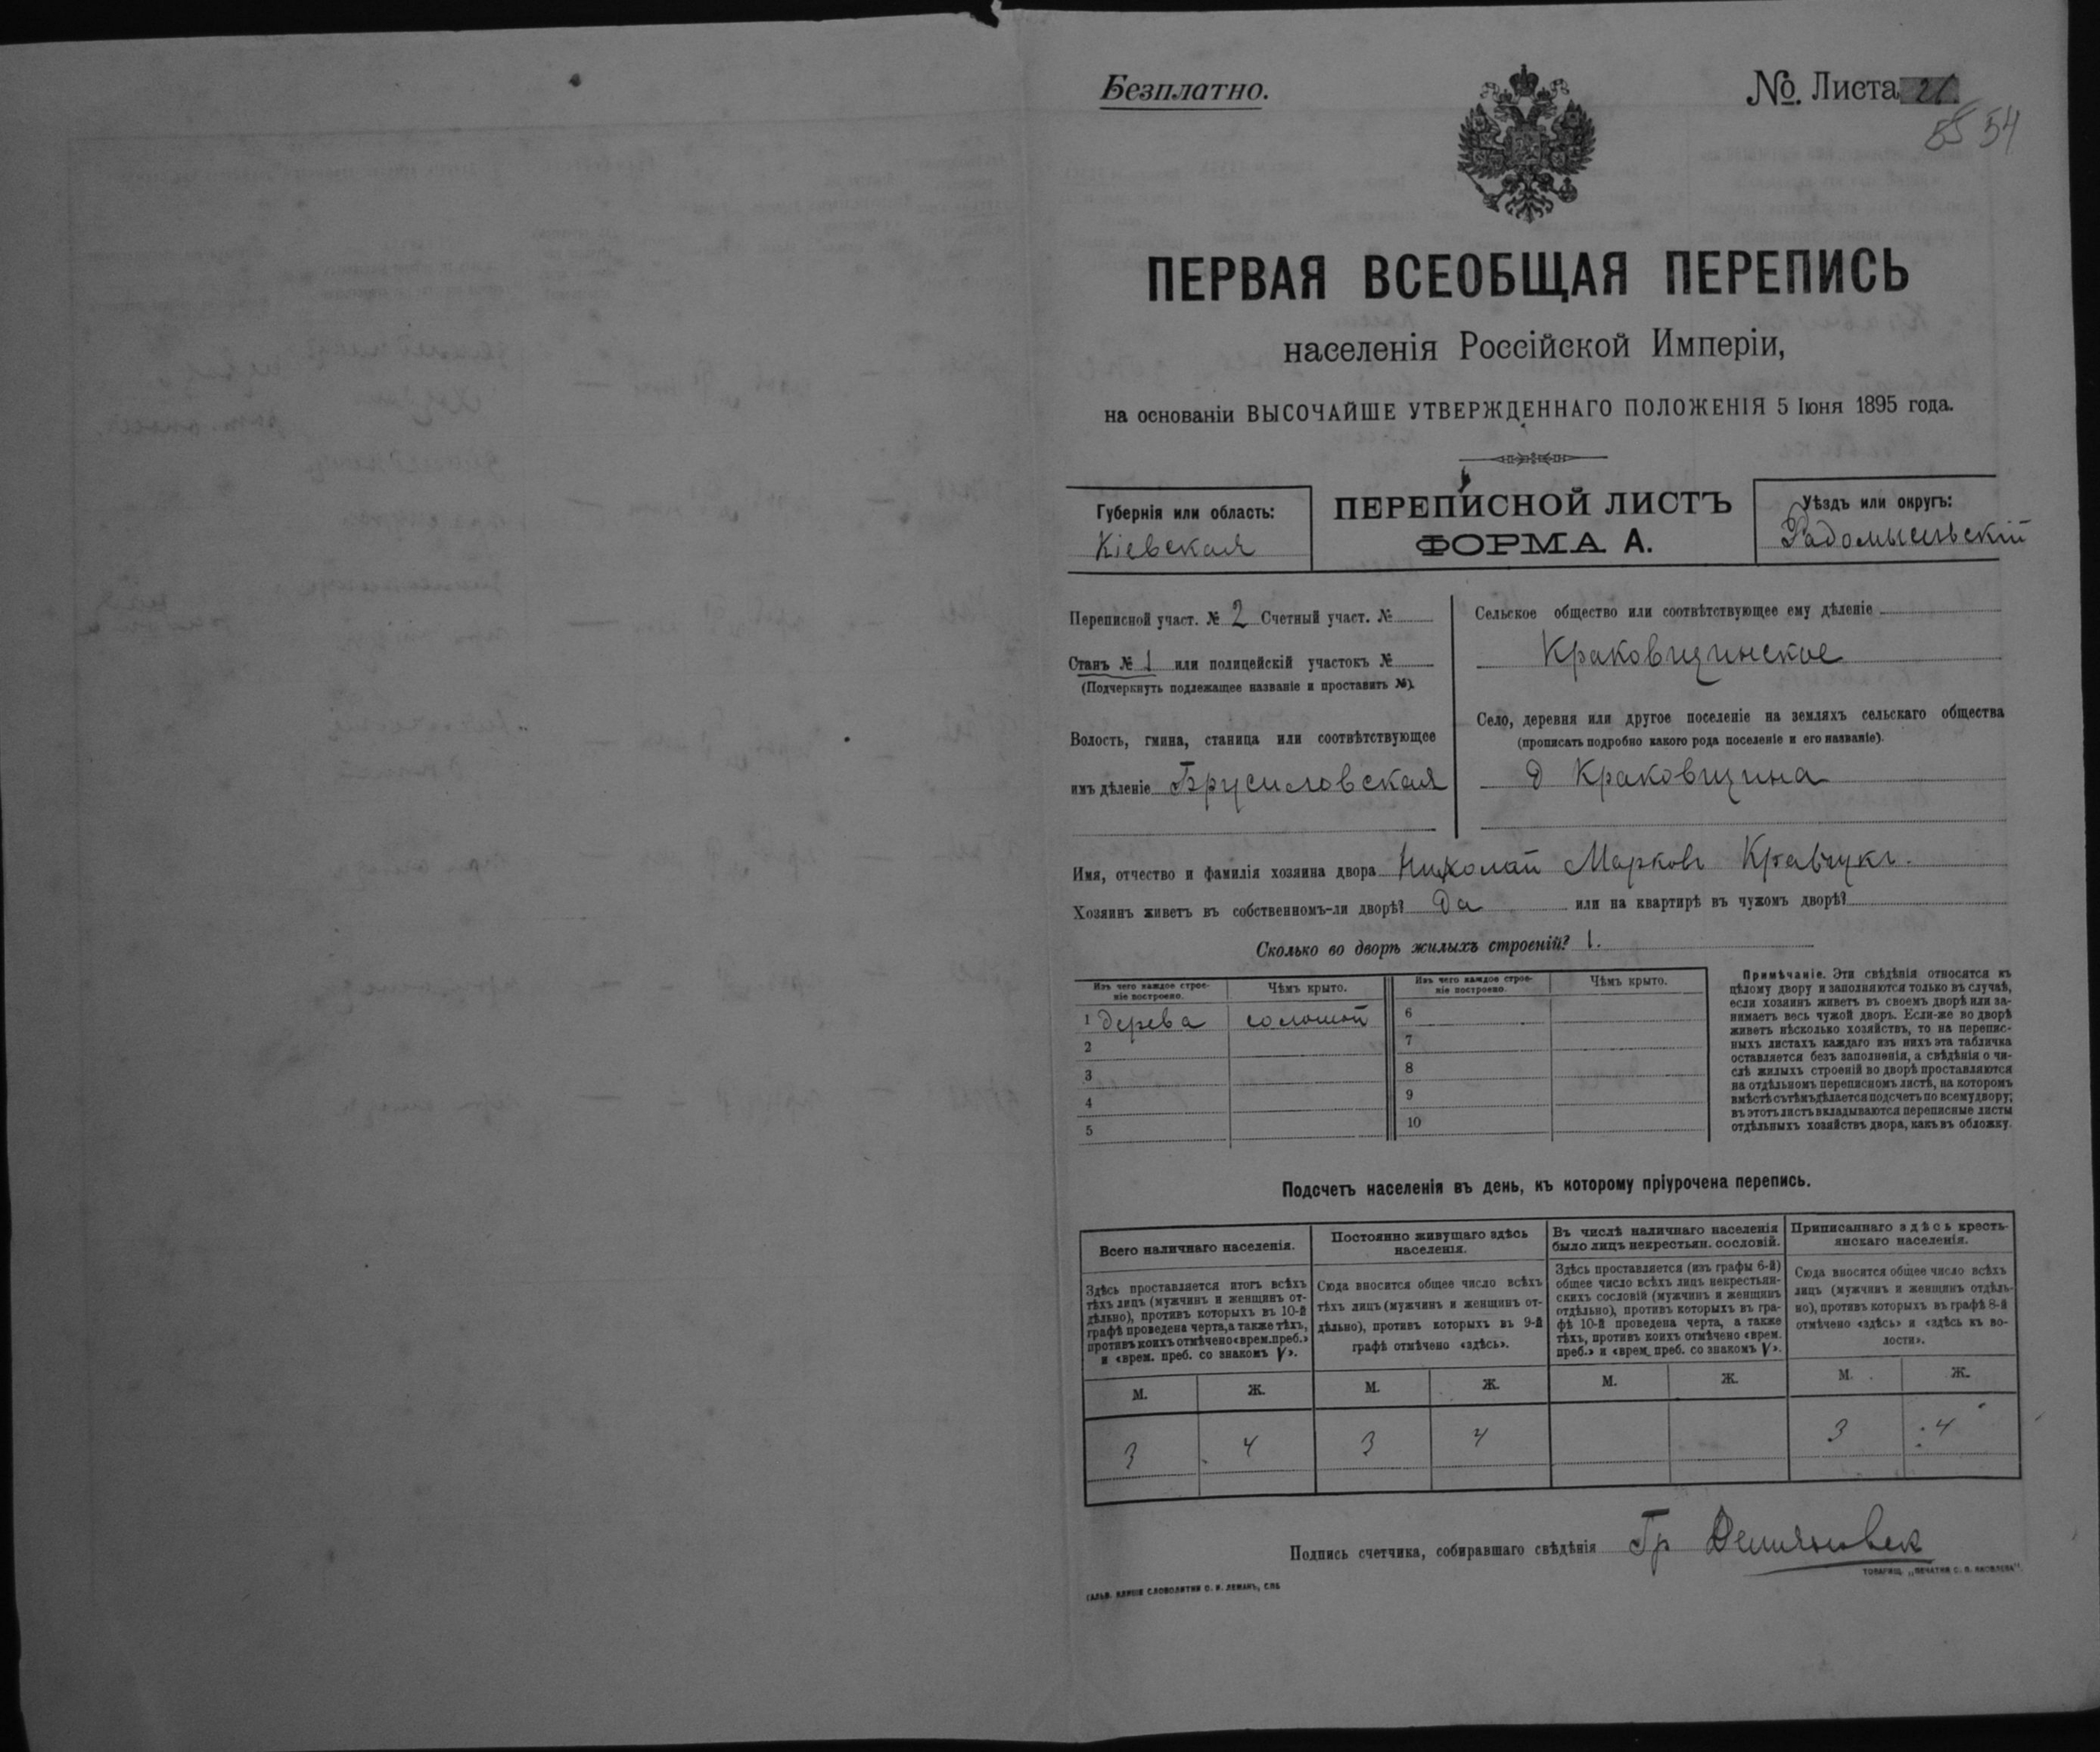 Безплатно.
№. Листа 21.
55 54
ПЕРВАЯ ВСЕОБЩАЯ ПЕРЕПИСЬ
населенія Россійской Имперіи,
на основаніи ВЫСОЧАЙШЕ УТВЕРЖДЕННАГО ПОЛОЖЕНІЯ 5 Іюня 1895 года.
Губернія или область:
Кіевская
ПЕРЕПИСНОЙ ЛИСТЪ
ФОРМА А.
Уѣздъ или округъ:
Радомысльскій
Переписной участ. № 2 Счетный участ. №
Станъ № 1 или полицейскій участокъ №
(Подчеркнуть подлежащее названіе и проставить №).
Волость, гмина, станица или соотвѣтствующее
имъ дѣленіе Брусиловская
Сельское общество или соотвѣтствующее ему дѣленіе
Краковщинское
Село, деревня или другое поселеніе на земляхъ сельскаго общества
(прописать подробно какого рода поселеніе и его названіе).
д Краковщина
Имя, отчество и фамилія хозяина двора Николай Марковъ Кравчукъ.
Хозяинъ живетъ въ собственномъ-ли дворѣ? Да или на квартирѣ въ чужомъ дворѣ?
Сколько во дворѣ жилыхъ строеній? 1.
Изъ чего каждое строе-
ніе построено.
Чѣмъ крыто.
Изъ чего каждое строе-
ніе построено.
Чѣмъ крыто.
1 дерева соломой 6
2 7
3 8
4 9
5 10
Примѣчаніе. Эти свѣдѣнія относятся къ
цѣлому двору и заполняются только въ случаѣ,
если хозяинъ живетъ въ своемъ дворѣ или за-
нимаетъ весь чужой дворъ. Если-же во дворѣ
живетъ нѣсколько хозяйствъ, то на перепис-
ныхъ листахъ каждаго изъ нихъ эта табличка
оставляется безъ заполненія, а свѣдѣнія о чи-
слѣ жилыхъ строеній во дворѣ проставляются
на отдѣльномъ переписномъ листѣ, на которомъ
вмѣстѣ съ тѣмъ дѣлается подсчетъ по всему двору;
въ этотъ листъ вкладываются переписные листы
отдѣльныхъ хозяйствъ двора, какъ въ обложку.
Подсчетъ населенія въ день, къ которому пріурочена перепись.
Всего наличнаго населенія.
Здѣсь проставляется итогъ всѣхъ
тѣхъ лицъ (мужчинъ и женщинъ от-
дѣльно), противъ которыхъ въ 10-й
графѣ проведена черта, а также тѣхъ,
противъ коихъ отмѣчено «врем. преб.»
и «врем. преб. со знакомъ V».
Постоянно живущаго здѣсь
населенія.
Сюда вносится общее число всѣхъ
тѣхъ лицъ (мужчинъ и женщинъ от-
дѣльно), противъ которыхъ въ 9-й
графѣ отмѣчено «здѣсь».
Въ числѣ наличнаго населенія
было лицъ некрестьян. сословій.
Здѣсь проставляется (изъ графы 6-й)
общее число всѣхъ лицъ некрестьян-
скихъ сословій (мужчинъ и женщинъ
отдѣльно), противъ которыхъ въ гра-
фѣ 10-й проведена черта, а также
тѣхъ, противъ коихъ отмѣчено «врем.
преб.» и «врем. преб. со знакомъ V».
Приписаннаго здѣсь кресть-
янскаго населенія.
Сюда вносится общее число всѣхъ
лицъ (мужчинъ и женщинъ отдѣль-
но), противъ которыхъ въ графѣ 8-й
отмѣчено «здѣсь» и «здѣсь къ во-
лости».
М. Ж. М. Ж. М. Ж. М. Ж.
3 4 3 4 3 4
Подпись счетчика, собиравшаго свѣдѣнія Гр
ГАЛЬВ. КЛИШЕ СЛОВОЛИТНИ О. И. ЛЕМАНЪ, СПБ
ТОВАРИЩ. „ПЕЧАТНЯ С. П. ЯКОВЛЕВА".